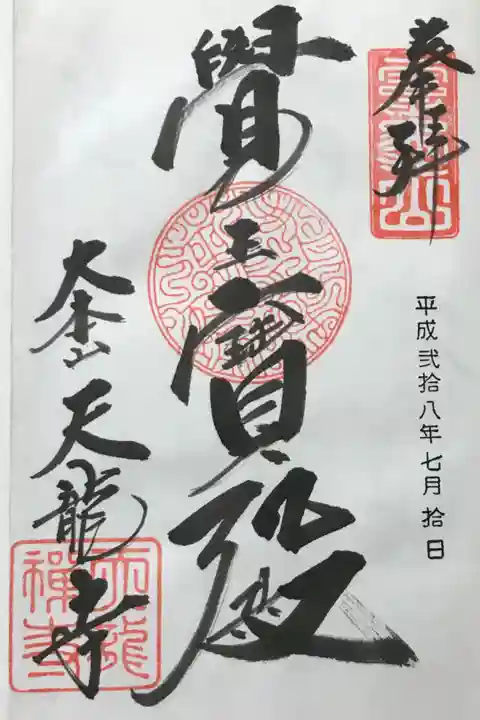 奉拝
平成弐拾八年七月拾日
覺王寳殿
大本山天龍寺
天龍禅寺